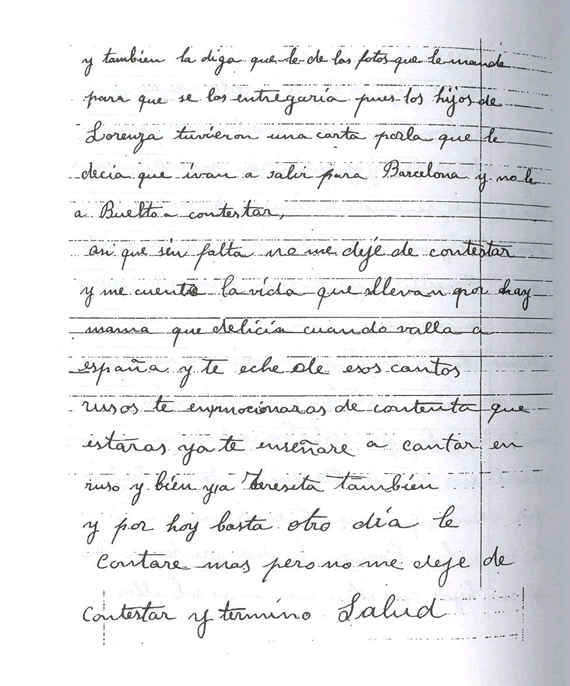 y tambien la diga que le de las fotos que le mande
para que se las entregaria pues los hijos de
Lorenza tuvieron una carta porla que le
decia que ivan a salir para Barcelona y no le
a Buelto a contestar,
asi que sin falta no me dejé de contestar
y me cuente la vida que llevan por hay
mama que delicia cuando valla a
españa y te eche ole esos cantos
rusos te enmocionaras de contenta que
estaras ya te enseñare a cantar en
ruso y bien y a Teresita también
y por hoy basta otro día le
Contare mas pero no me deje de
Contestar y termino Salud